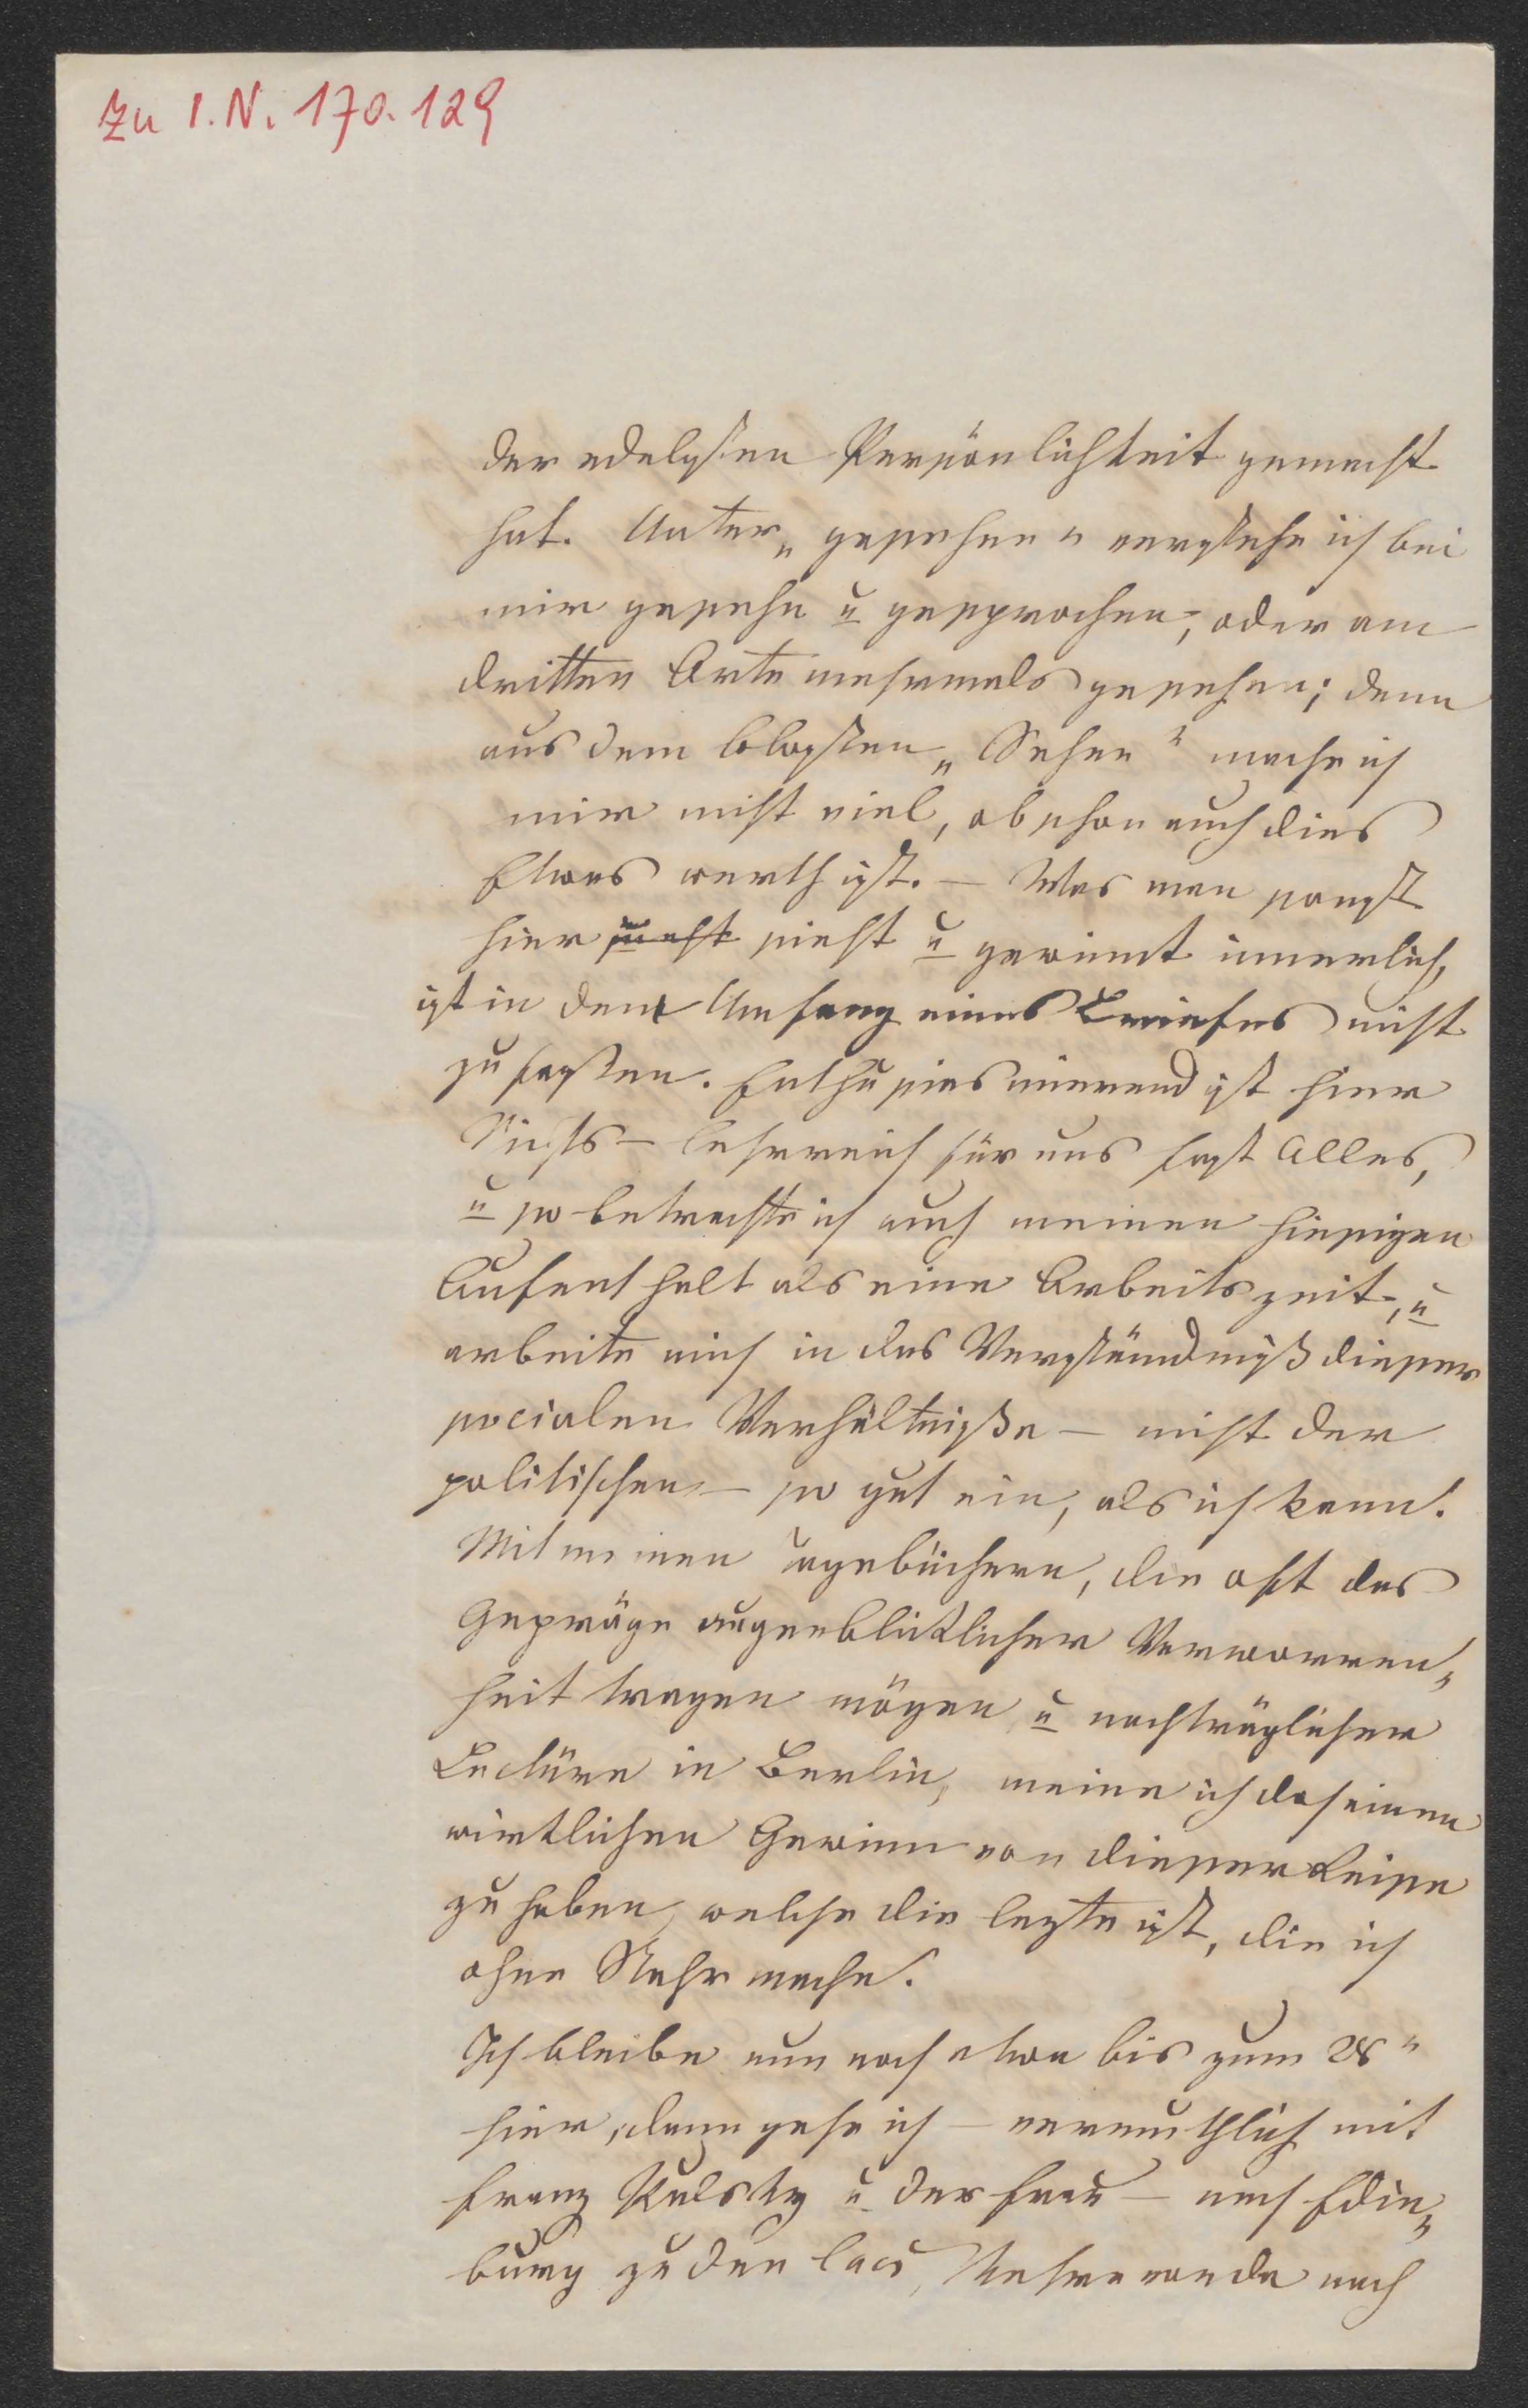 Zu I.N. 170.129
der edelsten Persönlichkeit gemacht
hat. Unter „gesehen" verstehe ich bei
mir gesehn u gesprochen, oder am
dritten Orte mehrmals gesehen; denn
aus dem bloßen „Sehen" mache ich
mir nicht viel, obschon auch dies
Etwas werth ist. — Was man sonst
hier sieht u gewinnt innerlich,
ist in dem Umfang eines Briefes nicht
zu faßen. Enthusiasmierend ist hier
Nichts — lehrreich für uns fast Alles,
u so betrachte ich auch meinen hiesigen
Aufenthalt als eine Arbeitszeit, u
arbeite mich in das Verständniß dieser
socialen Verhältniße — nicht der
politischen — so gut ein, als ich kann.
Mit meinen Tagebüchern, die oft das
Gepräge augenblicklicher Verworren„
heit tragen mögen u nachträglicher
Lectüre in Berlin, meine ich doch einen
wirklichen Gewinn von dieser Reise
zu haben, welche die lezte ist, die ich
ohne Stahr mache.
Ich bleibe nun noch etwa bis zum 28"
hier, dann gehe ich — vermuthlich mit
Franz Pulsky u der Frau — nach Edin„
burg zu den lacs, Ende nach